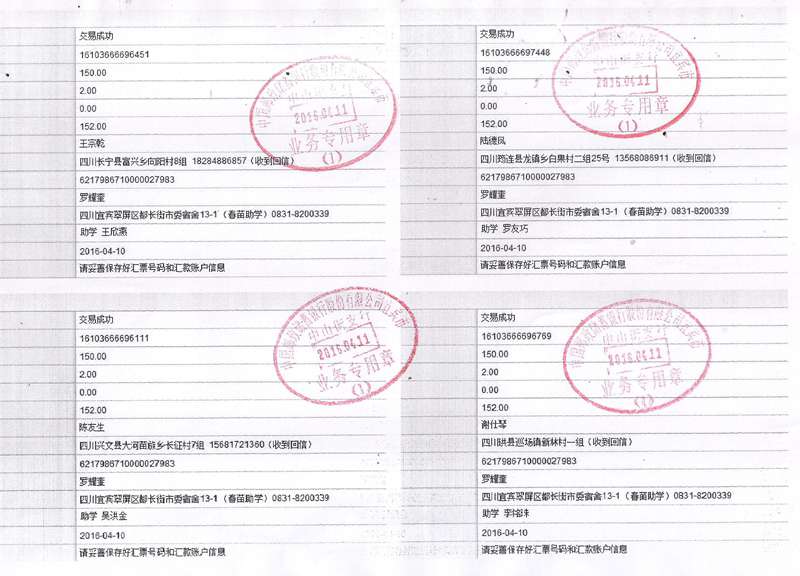 交易成功
16103666696451
150.00
2.00
0.00
152.00
王宗乾
四川长宁县富兴乡向阳村8组 18284886857（收到回信）
6217986710000027983
罗耀奎
四川宜宾翠屏区都长街市委宿舍13-1（春苗助学）0831-8200339
助学 王欣
2016-04-10
请妥善保存好汇票号码和汇款账户信息
2016.04.11
业务专用章
(1)
交易成功
16103666697448
150.00
2.00
0.00
152.00
陆德凤
四川筠连县龙镇乡白果村二组25号 13568086911（收到回信）
6217986710000027983
罗耀奎
四川宜宾翠屏区都长街市委宿舍13-1（春苗助学）0831-8200339
助学 罗友巧
2016-04-10
请妥善保存好汇票号码和汇款账户信息
2016.04.11
业务专用章
(1)
交易成功
16103666696111
150.00
2.00
0.00
152.00
陈友生
四川兴文县大河苗族乡长征村7组 15681721360（收到回信）
6217986710000027983
罗耀奎
四川宜宾翠屏区都长街市委宿舍13-1（春苗助学）0831-8200339
助学 吴洪金
2016-04-10
请妥善保存好汇票号码和汇款账户信息
中山街支行
2016.04.11
业务专用章
(1)
交易成功
16103666696769
150.00
2.00
0.00
152.00
谢仕琴
四川珙县巡场镇新林村一组（收到回信）
6217986710000027983
罗耀奎
四川宜宾翠屏区都长街市委宿舍13-1（春苗助学）0831-8200339
助学 李
2016-04-10
请妥善保存好汇票号码和汇款账户信息
中山街支行
2016.04.11
业务专用章
(1)